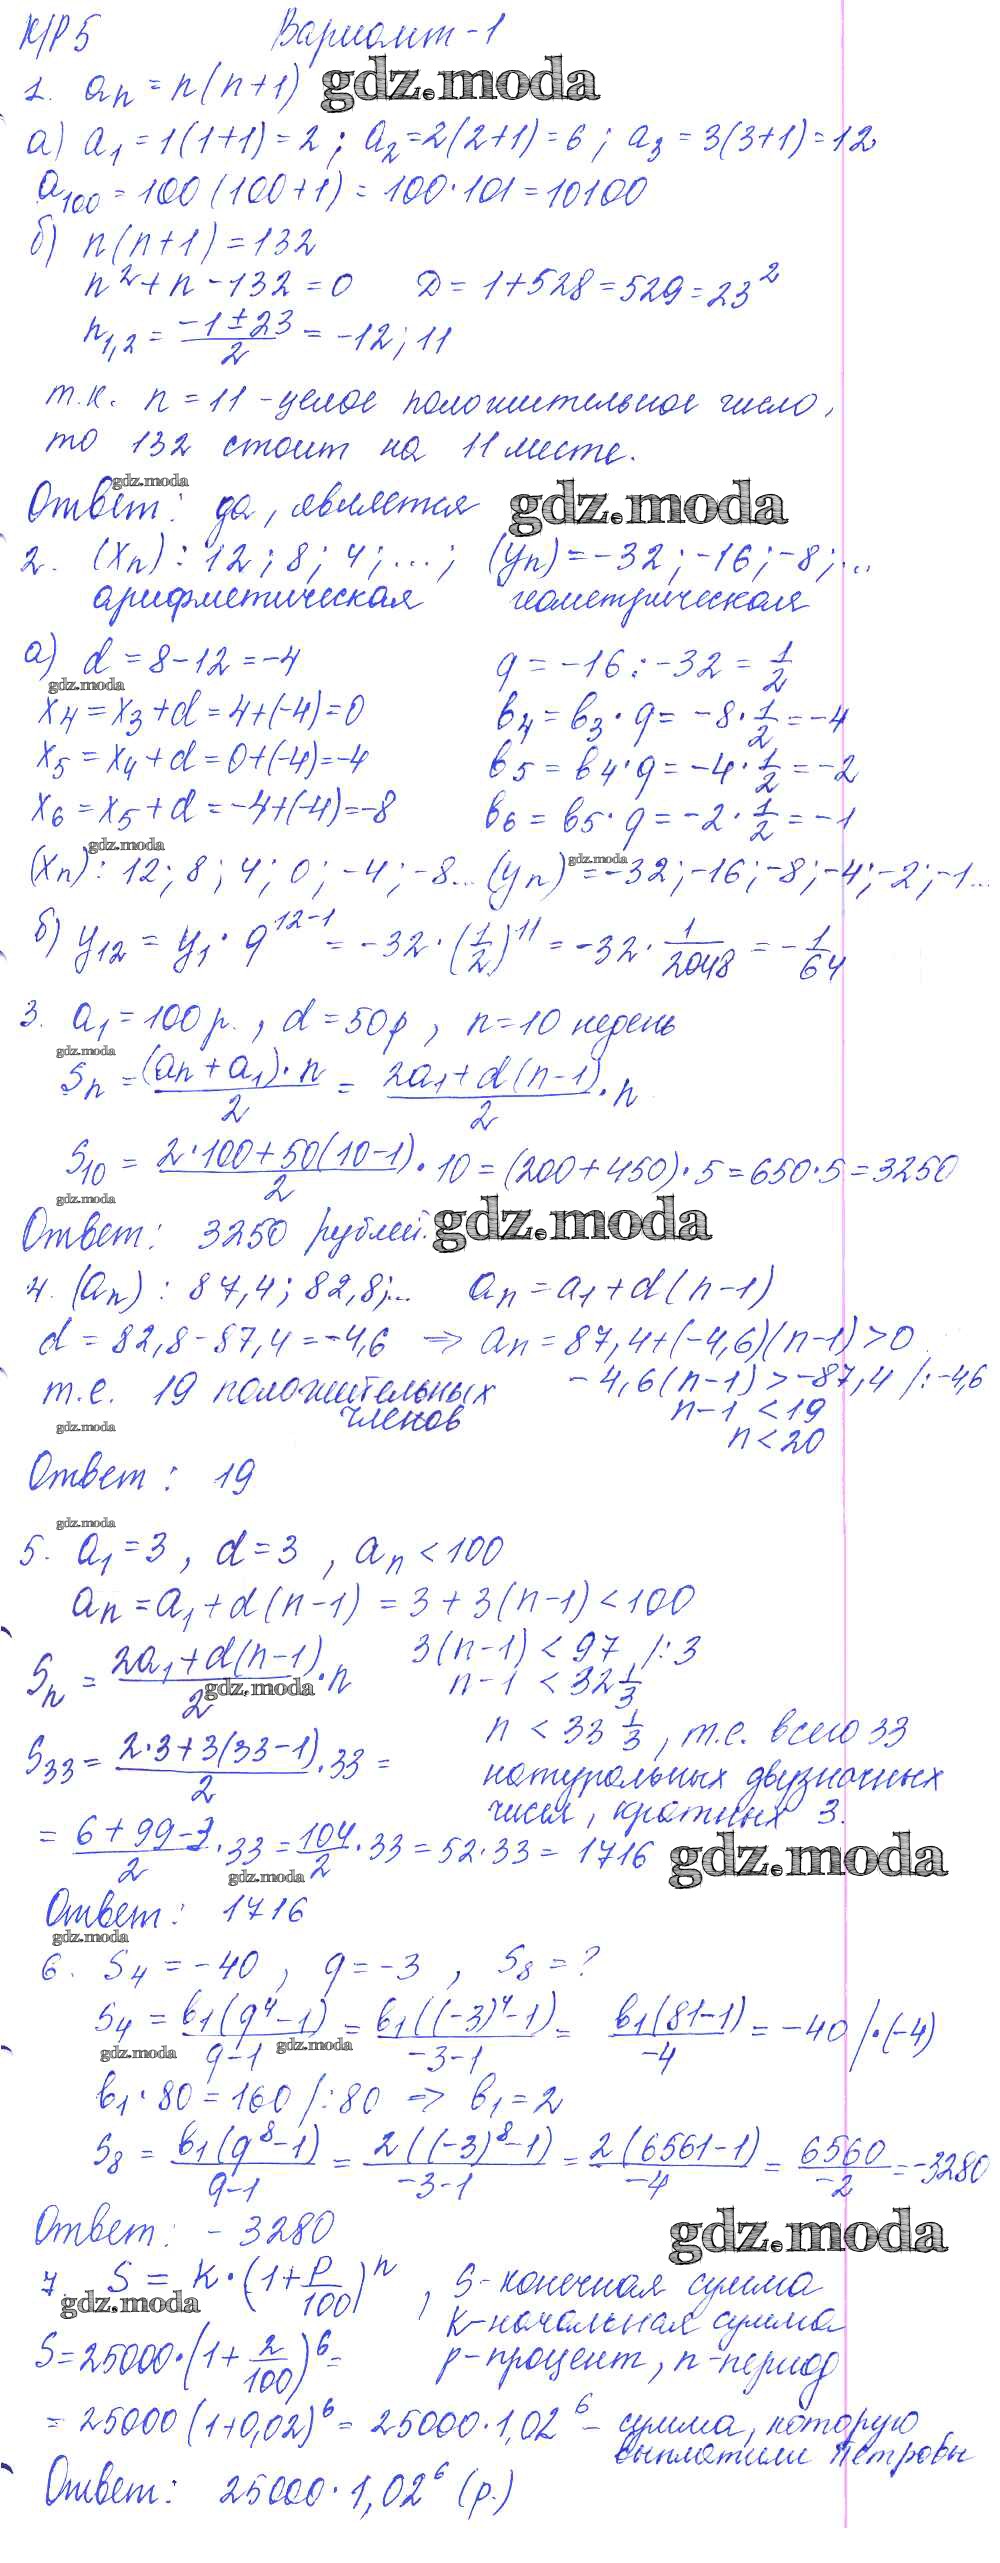 К/Р 5 Вариант-1
1. an = n(n+1) gdz.moda
а) a1 = 1(1+1) = 2; a2 = 2(2+1) = 6; a3 = 3(3+1) = 12
a100 = 100(100+1) = 100·101 = 10100
б) n(n+1) = 132
n² + n - 132 = 0 D = 1+528 = 529 = 23²
n1,2 = (-1±23)/2 = -12; 11
т.к. n = 11 - целое положительное число,
то 132 стоит на 11 месте.
gdz.moda
Ответ: да, является gdz.moda
2. (xn): 12; 8; 4; ...; (yn) = -32; -16; -8; ...
арифметическая геометрическая
а) d = 8-12 = -4 q = -16 : -32 = 1/2
gdz.moda
x4 = x3 + d = 4+(-4) = 0 b4 = b3·q = -8·1/2 = -4
x5 = x4 + d = 0+(-4) = -4 b5 = b4·q = -4·1/2 = -2
x6 = x5 + d = -4+(-4) = -8 b6 = b5·q = -2·1/2 = -1
gdz.moda gdz.moda
(xn): 12; 8; 4; 0; -4; -8... (yn) = -32; -16; -8; -4; -2; -1...
б) y12 = y1·q^12-1 = -32·(1/2)^11 = -32·1/2048 = -1/64
3. a1 = 100 р., d = 50р, n = 10 недень
gdz.moda
Sn = (an + a1)·n/2 = (2a1 + d(n-1))/2·n
S10 = (2·100+50(10-1))/2·10 = (200+450)·5 = 650·5 = 3250
gdz.moda
Ответ: 3250 рублей. gdz.moda
4. (an): 87,4; 82,8;... an = a1 + d(n-1)
d = 82,8-87,4 = -4,6 => an = 87,4+(-4,6)(n-1) > 0
т.е. 19 положительных -4,6(n-1) > -87,4 /: -4,6
членов n-1 < 19
gdz.moda
n < 20
Ответ: 19
gdz.moda
5. a1 = 3, d = 3, an < 100
an = a1 + d(n-1) = 3+3(n-1) < 100
Sn = (2a1 + d(n-1))/2·n 3(n-1) < 97 /:3
gdz.moda n-1 < 32 1/3
S33 = (2·3+3(33-1))/2·33 = n < 33 1/3, т.е. всего 33
натуральных двузначных
чисел, кратных 3.
= (6+99-3)/2·33 = 104/2·33 = 52·33 = 1716 gdz.moda
gdz.moda
Ответ: 1716
gdz.moda
6. S4 = -40, q = -3, S8 = ?
S4 = b1(q⁴-1)/(q-1) = b1((-3)⁴-1)/(-3-1) = b1(81-1)/-4 = -40 /·(-4)
gdz.moda gdz.moda
b1·80 = 160 /:80 => b1 = 2
S8 = b1(q⁸-1)/(q-1) = 2((-3)⁸-1)/(-3-1) = 2(6561-1)/-4 = 6560/-2 = -3280
Ответ: -3280 gdz.moda
7. S = K·(1+P/100)^n, S-конечная сумма
gdz.moda K-начальная сумма
S = 25000·(1+2/100)⁶ = p-процент, n-период
= 25000(1+0,02)⁶ = 25000·1,02⁶ - сумма, которую
выплатили Петровы
Ответ: 25000·1,02⁶ (р.)